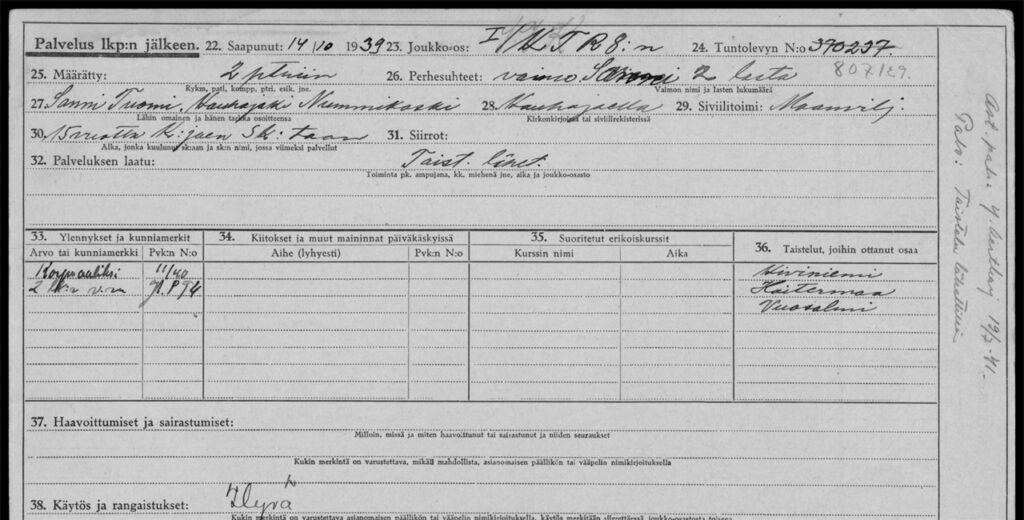 Palvelus lkp:n jälkeen. 22. Saapunut: 14/10 1939 23. Joukko-os: 8:n 24. Tuntolevyn N:o 390237.
807129.
25. Määrätty: 2 ptriin 26. Perhesuhteet: vaimo Sanni 2 lasta
Rykm, patl, kompp, ptri, esik. jne. Vaimon nimi ja lasten lukumäärä
27. Sanni Tuomi, Kauhajoki Nummikoski 28. Kauhajoella 29. Siviilitoimi: Maanvilj.
Lähin omainen ja hänen tarkka osoitteensa Kirkonkirjoissa tai siviilirekisterissä
30. 15 vuotta K:joen Sk:taan 31. Siirrot:
Aika, jonka kuulunut sk:aan ja sk:n nimi, jossa viimeksi palvellut
32. Palveluksen laatu: Taist. lähet.
Toiminta pk. ampujana, kk. miehenä jne, aika ja joukko-osasto
33. Ylennykset ja kunniamerkit 34. Kiitokset ja muut maininnat päiväkäskyissä 35. Suoritetut erikoiskurssit 36. Taistelut, joihin ottanut osaa
Arvo tai kunniamerkki Pvk:n N:o Aihe (lyhyesti) Pvk:n N:o Kurssin nimi Aika
Korpraaliksi 11/40 Kiviniemi
2 lk:n v:m Haitermaa
Vuosalmi
37. Haavoittumiset ja sairastumiset:
Milloin, missä ja miten haavoittunut tai sairastunut ja niiden seuraukset
Kukin merkintä on varustettava, mikäli mahdollista, asianomaisen päällikön tai vääpelin nimikirjoituksella
38. Käytös ja rangaistukset: Hyvä
Kukin merkintä on varustettava asianomaisen päällikön tai vääpelin nimikirjoituksella, käytös merkitään siirrettäessä joukko-osastosta toiseen
19/7-41.
Palv: Taistelu lähettinä